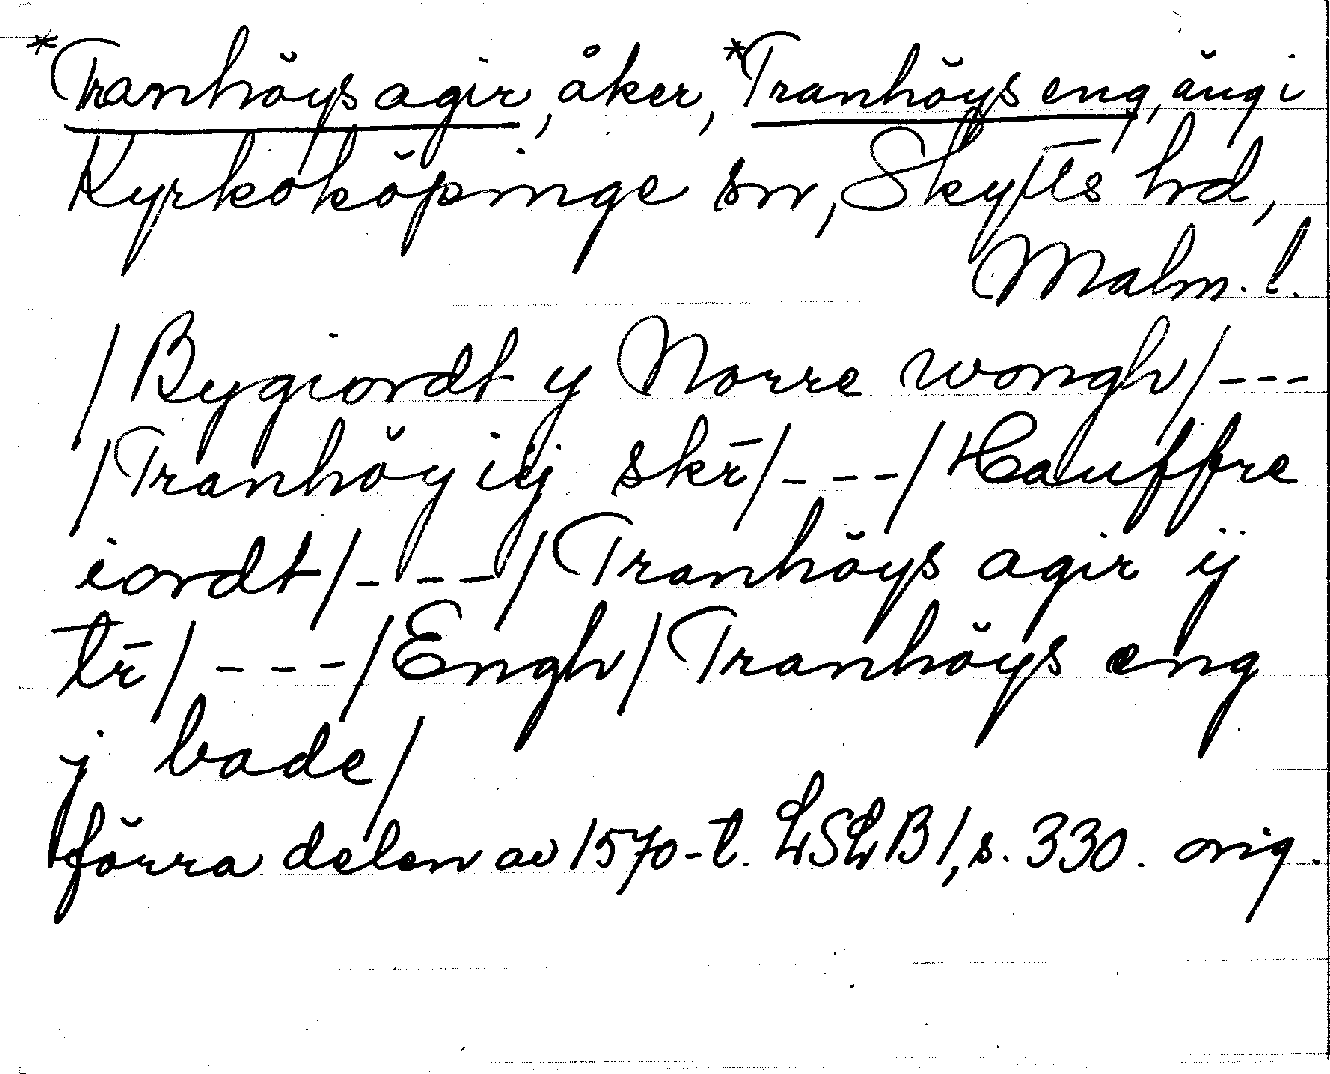 *Tranhöys agir, åker, *Tranhöys eng, äng i
Kyrkoköpinge sn, Skytts hd,
Malm. l.
/Bygiordt y Norre wongh/---
/Tranhöy iij skr̄/---/Hauffre
iordt/---/Tranhöys agir ij
tr̄/---/Engh/Tranhöys eng
j bade/
förra delen av 1570-t. LSLB 1, s. 330. orig.